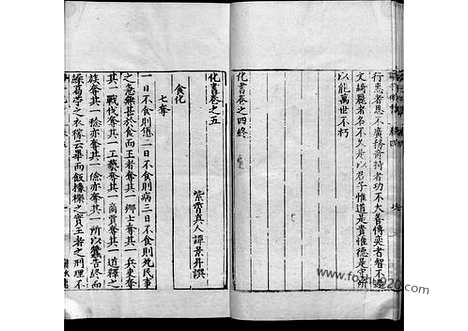 行惠者恩不廣務奇特者功不大善博奕者智不遠
文綺麗者名不久是以君子惟道是貴惟德是守所
以能萬世不朽
化書卷之四終
化書卷之五
紫霄真人譚景升撰
食化
七奪
一日不食則憊二日不食則病三日不食則死民事
之急無甚於食而王者奪其一卿士奪其一兵吏奪
其一戰伐奪其一工藝奪其一商賈奪其一道釋之
族奪其一稔亦奪其一儉亦奪其一所以蠶告終而
繰葛苧之衣稼云畢而飯橡櫟之實王者之刑理不